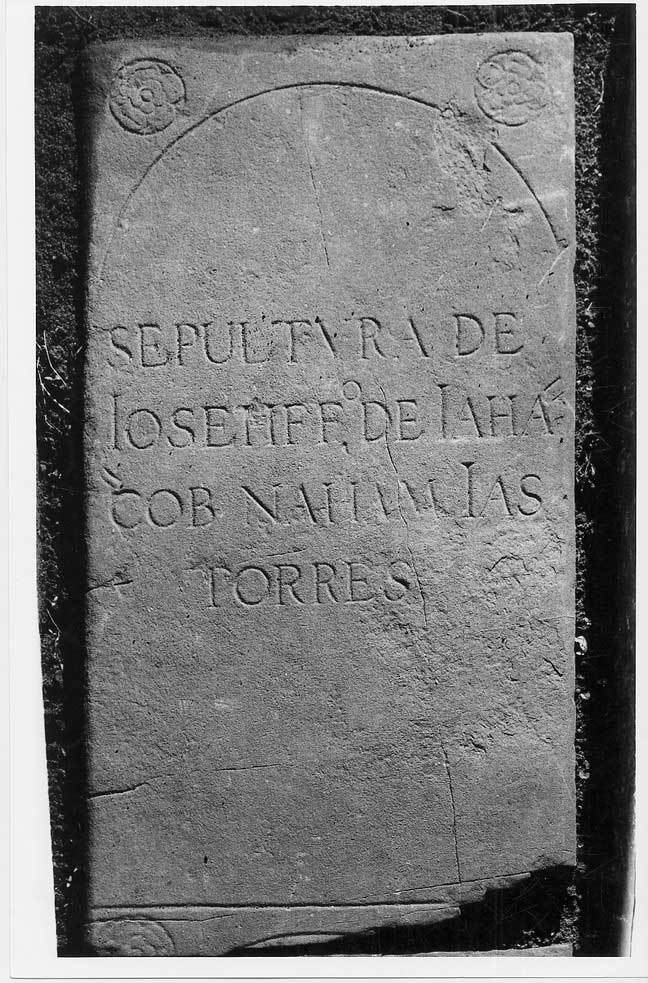 SEPULTVRA DE
IOSEHFF.º DE IAHA-
COB NAHUM IAS
TORRES